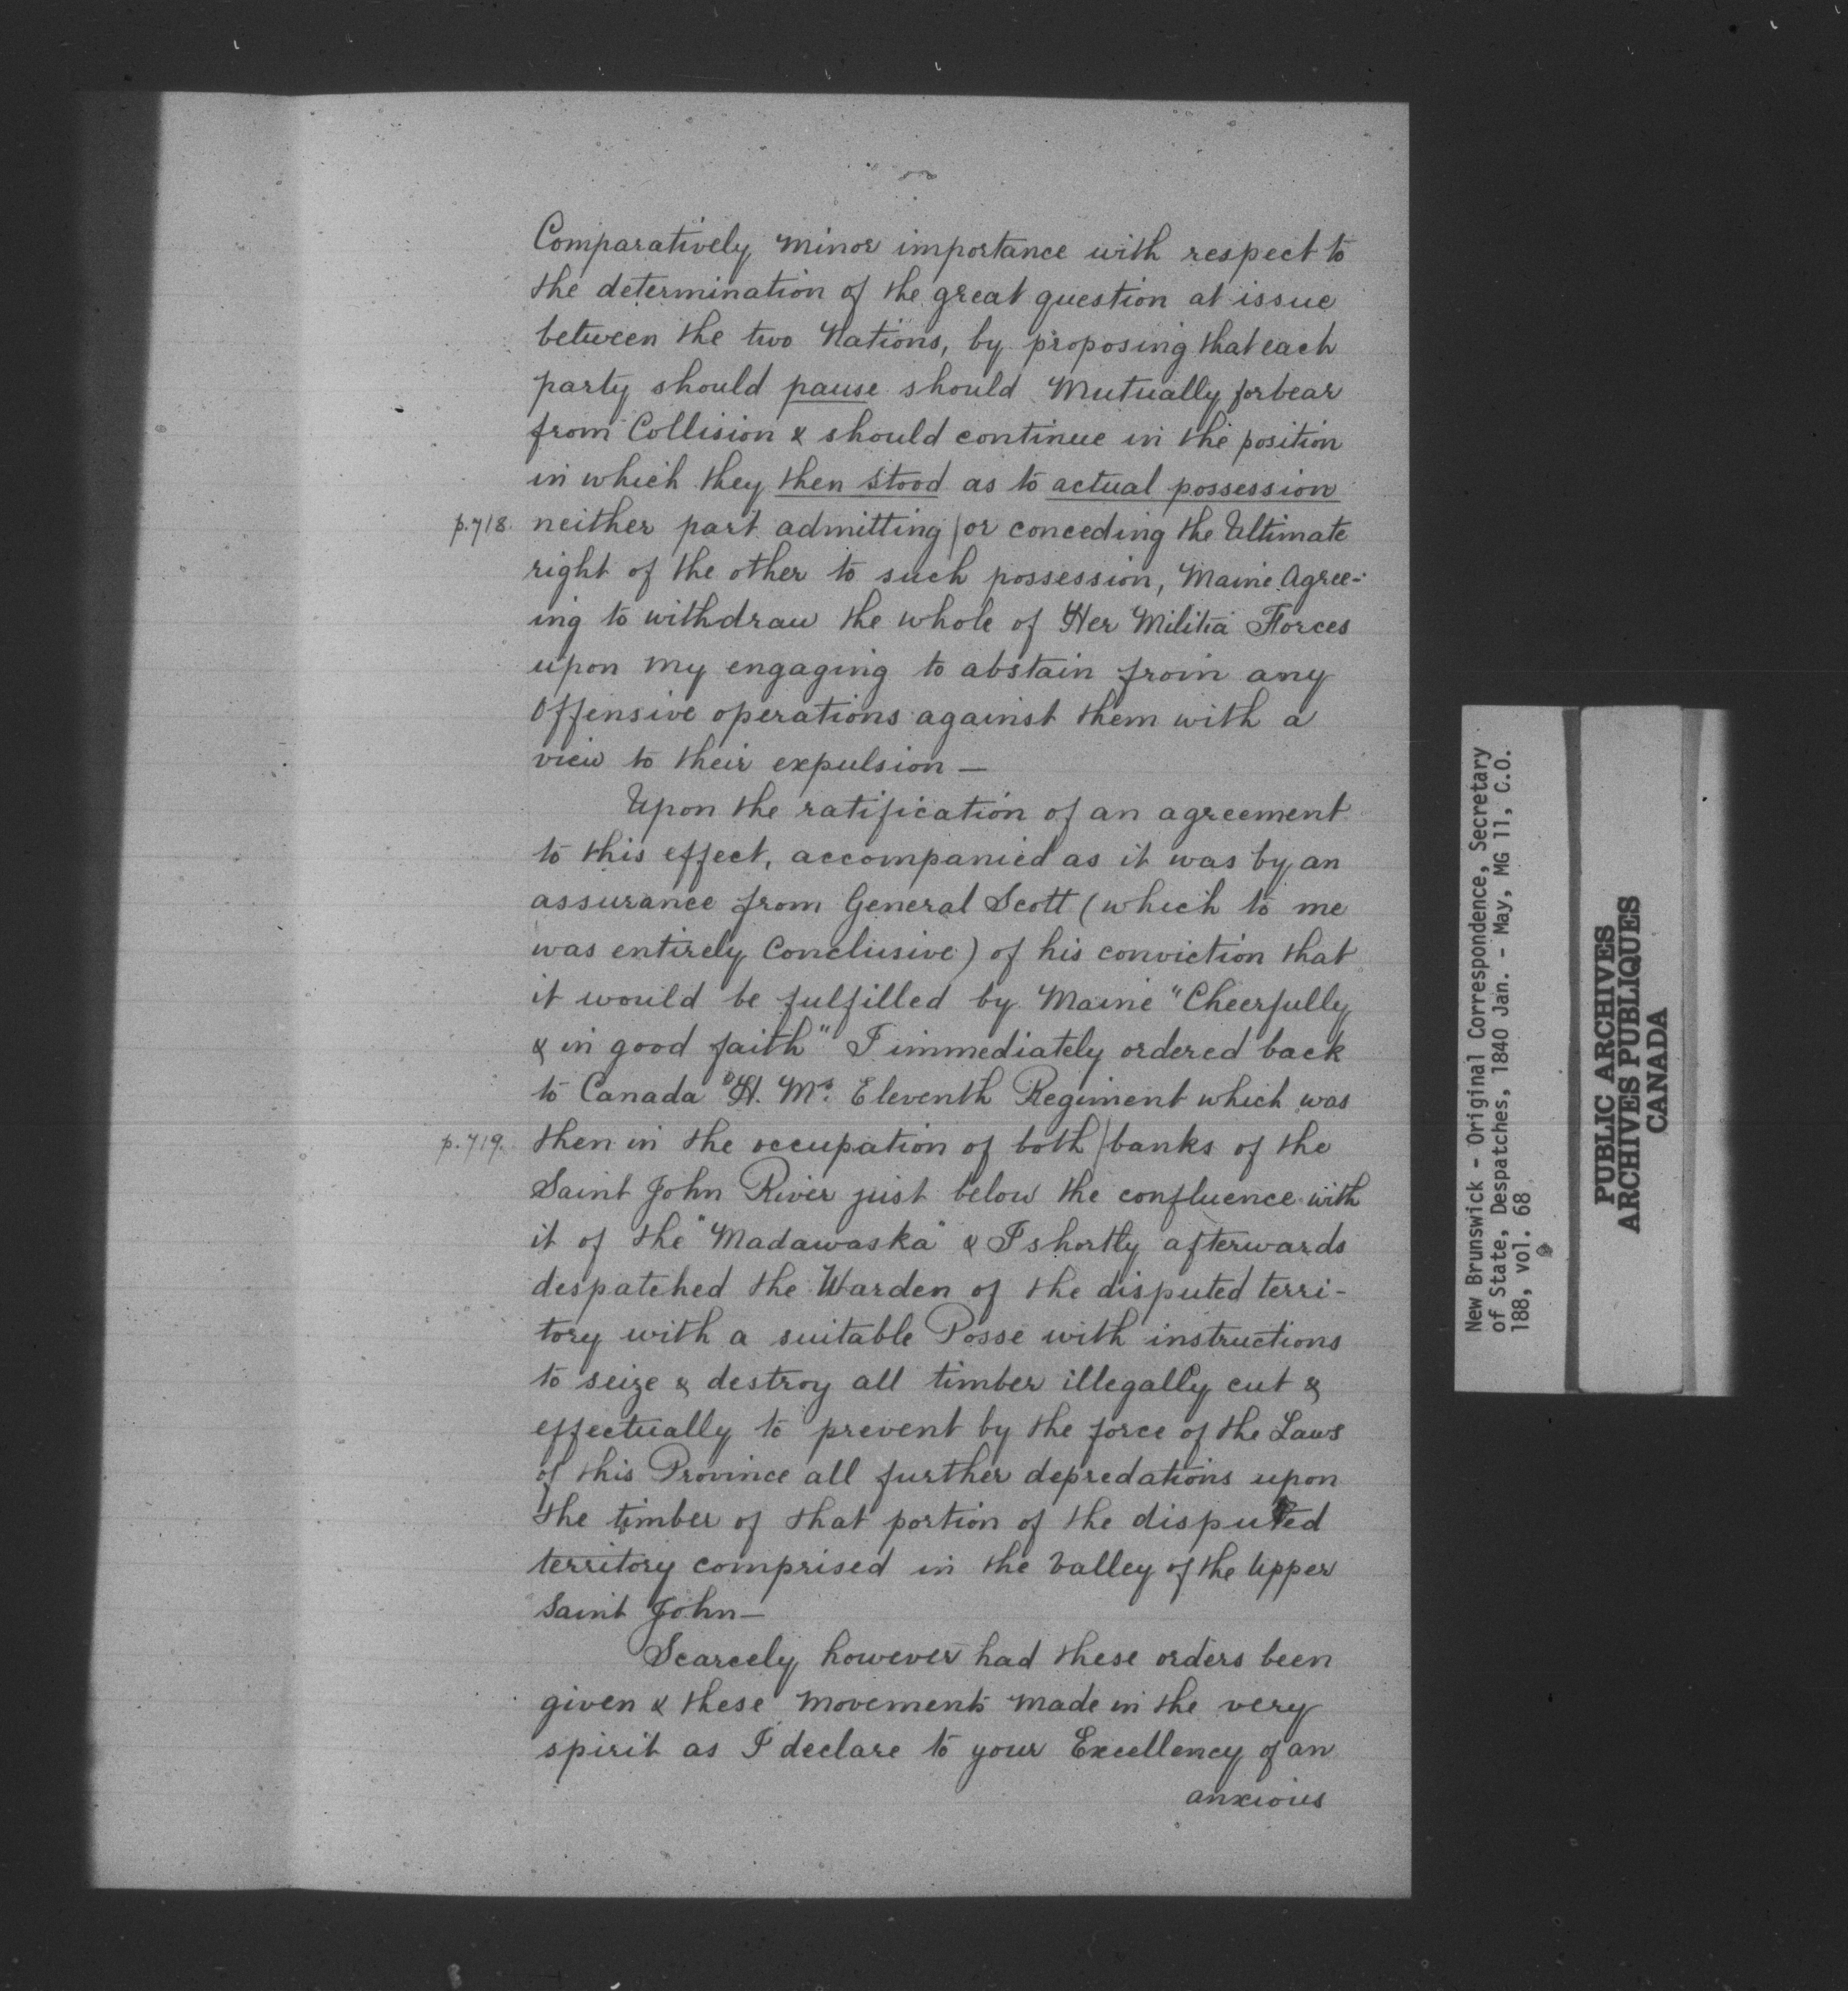 Comparatively minor importance with respect to
the determination of the great question at issue
between the two Nations, by proposing that each
party should pause should Mutually forbear
from Collision & should continue in the position
in which they then stood as to actual possession
p.718. neither part admitting / or conceding the Ultimate
right of the other to such possession, Maine Agree-
ing to withdraw the whole of Her Militia Forces
upon my engaging to abstain from any
Offensive operations against them with a
view to their expulsion —
Upon the ratification of an agreement
to this effect, accompanied as it was by an
assurance from General Scott (which to me
was entirely Conclusive) of his conviction that
it would be fulfilled by Maine "Cheerfully
& in good faith" I immediately ordered back
to Canada H. Ms. Eleventh Regiment which was
p.719. then in the occupation of both / banks of the
Saint John River just below the confluence with
it of the "Madawaska" & I shortly afterwards
despatched the Warden of the disputed terri-
tory with a suitable Posse with instructions
to seize & destroy all timber illegally cut &
effectually to prevent by the force of the Laws
of this Province all further depredations upon
the timber of that portion of the disputed
territory comprised in the Valley of the Upper
Saint John —
Scarcely however had these orders been
given & these movements made in the very
spirit as I declare to your Excellency of an
anxious
New Brunswick - Original Correspondence, Secretary
of State, Despatches, 1840 Jan. - May, MG 11, C.O.
188, vol. 68
PUBLIC ARCHIVES
ARCHIVES PUBLIQUES
CANADA